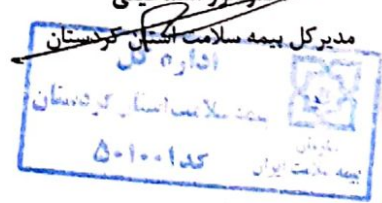 مدیرکل بیمه سلامت استان کردستان
اداره کل
بیمه سلامت استان کردستان
سازمان
بیمه سلامت ایران
کد ۵۰۱۰۰۱